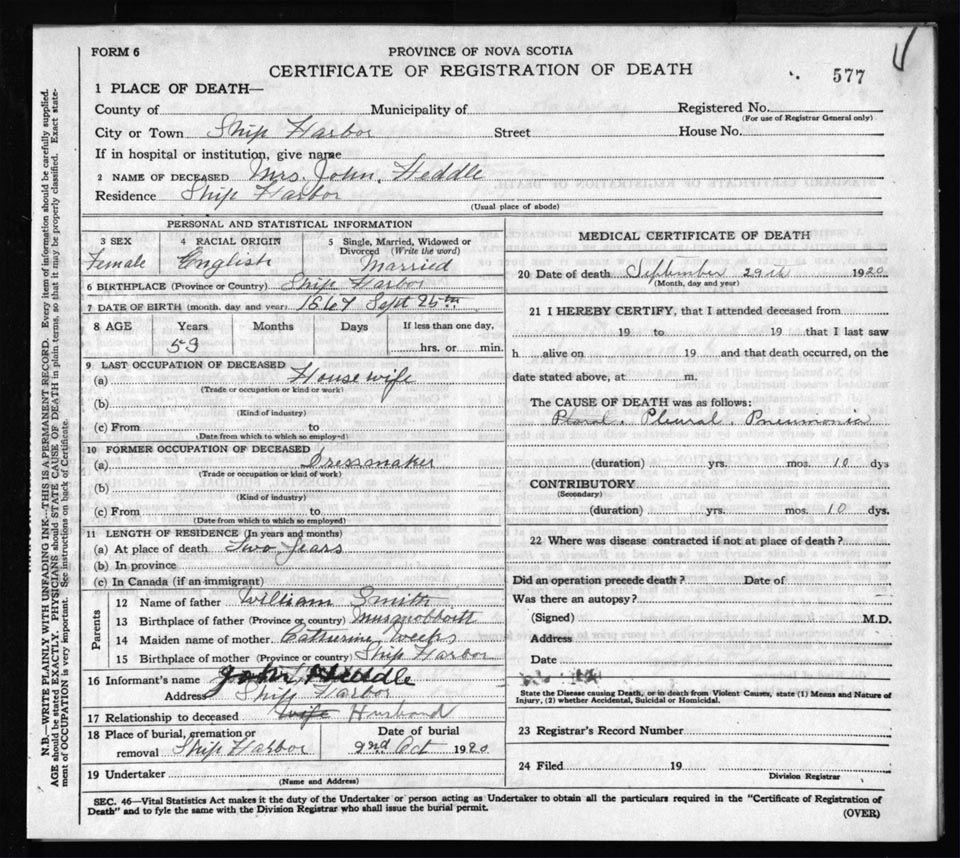 FORM 6
PROVINCE OF NOVA SCOTIA
CERTIFICATE OF REGISTRATION OF DEATH
577
1 PLACE OF DEATH—
County of Municipality of Registered No.
(For use of Registrar General only)
City or Town Ship Harbor Street House No.
If in hospital or institution, give name
2 NAME OF DECEASED Mrs. John. Heddle
Residence Ship Harbor
(Usual place of abode)
PERSONAL AND STATISTICAL INFORMATION
3 SEX 4 RACIAL ORIGIN 5 Single, Married, Widowed or Divorced (Write the word)
Female English Married
6 BIRTHPLACE (Province or Country) Ship Harbor
7 DATE OF BIRTH (month, day and year) 1867 Sept 25th
8 AGE Years Months Days If less than one day,
53 hrs. or min.
9 LAST OCCUPATION OF DECEASED
(a) House wife
(Trade or occupation or kind or work)
(b)
(Kind of industry)
(c) From to
(Date from which to which so employed)
10 FORMER OCCUPATION OF DECEASED
(a) Dressmaker
(Trade or occupation or kind of work)
(b)
(Kind of industry)
(c) From to
(Date from which to which so employed)
11 LENGTH OF RESIDENCE (In years and months)
(a) At place of death Two Years
(b) In province
(c) In Canada (if an immigrant)
Parents
12 Name of father William Smith
13 Birthplace of father (Province or country)
14 Maiden name of mother Catherine Weeks
15 Birthplace of mother (Province or country) Ship Harbor
16 Informant's name John Heddle
Address Ship Harbor
17 Relationship to deceased Wife Husband
18 Place of burial, cremation or removal Ship Harbor
Date of burial
2nd Oct 1920
19 Undertaker
(Name and Address)
MEDICAL CERTIFICATE OF DEATH
20 Date of death September 29th 1920
(Month, day and year)
21 I HEREBY CERTIFY, that I attended deceased from
19 to 19 that I last saw
h alive on 19 and that death occurred, on the
date stated above, at m.
The CAUSE OF DEATH was as follows:
Plural. Pneumonia
(duration) yrs. mos. 10 dys
CONTRIBUTORY
(Secondary)
(duration) yrs. mos. 10 dys.
22 Where was disease contracted if not at place of death?
Did an operation precede death? Date of
Was there an autopsy?
(Signed) M.D.
Address
Date
State the Disease causing Death, or in death from Violent Causes, state (1) Means and Nature of
Injury, (2) whether Accidental, Suicidal or Homicidal.
23 Registrar's Record Number
24 Filed 19
Division Registrar
SEC. 46—Vital Statistics Act makes it the duty of the Undertaker or person acting as Undertaker to obtain all the particulars required in the "Certificate of Registration of
Death" and to fyle the same with the Division Registrar who shall issue the burial permit.
(OVER)
N.B.—WRITE PLAINLY WITH UNFADING INK—THIS IS A PERMANENT RECORD. Every item of information should be carefully supplied.
AGE should be stated EXACTLY. PHYSICIANS should STATE CAUSE OF DEATH in plain terms, so that it may be properly classified. Exact state-
ment of OCCUPATION is very important. See instructions on back of Certificate.